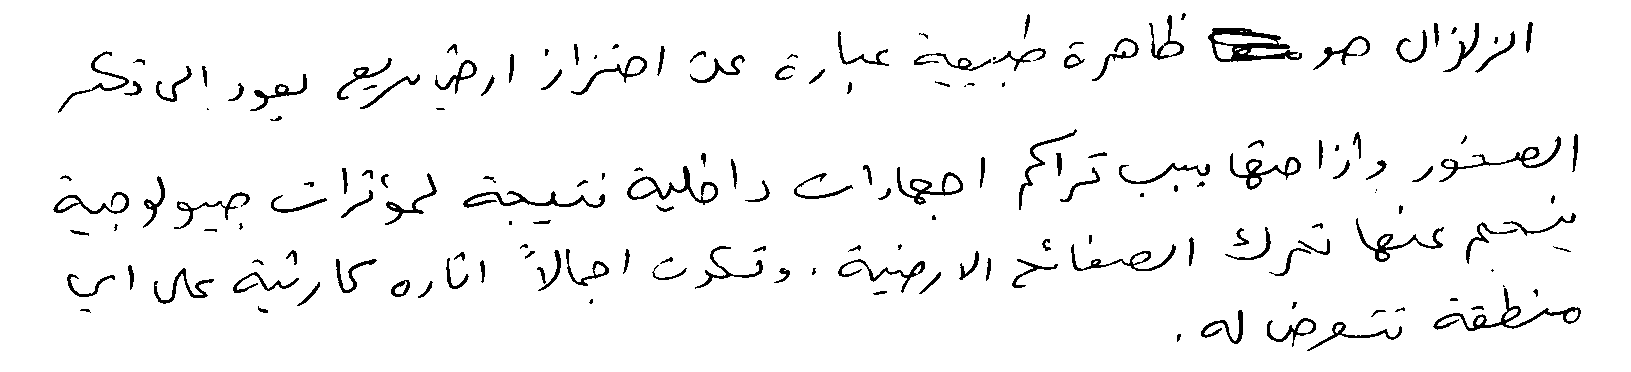 الزلزال هو ظاهرة طبيعية عبارة عن اهتزاز ارضي سريع يعود الى تكسر
الصخور وأزاحتها بسبب تراكم اجهادات داخلية نتيجة لمؤثرات جيولوجية
ينجم عنها تحرك الصفائح الارضية . وتكون اجمالاً اثاره كارثية على اي
منطقة تتعرض له .